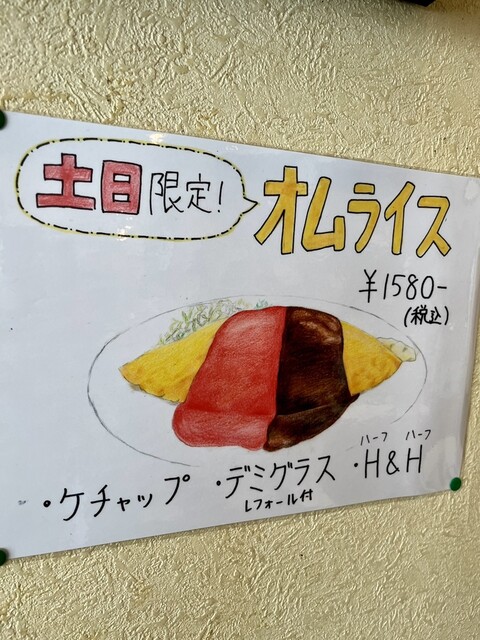 土日限定!
オムライス
¥1580-
(税込)
・ケチャップ ・デミグラス ・H&H
レフォール付
ハーフ ハーフ